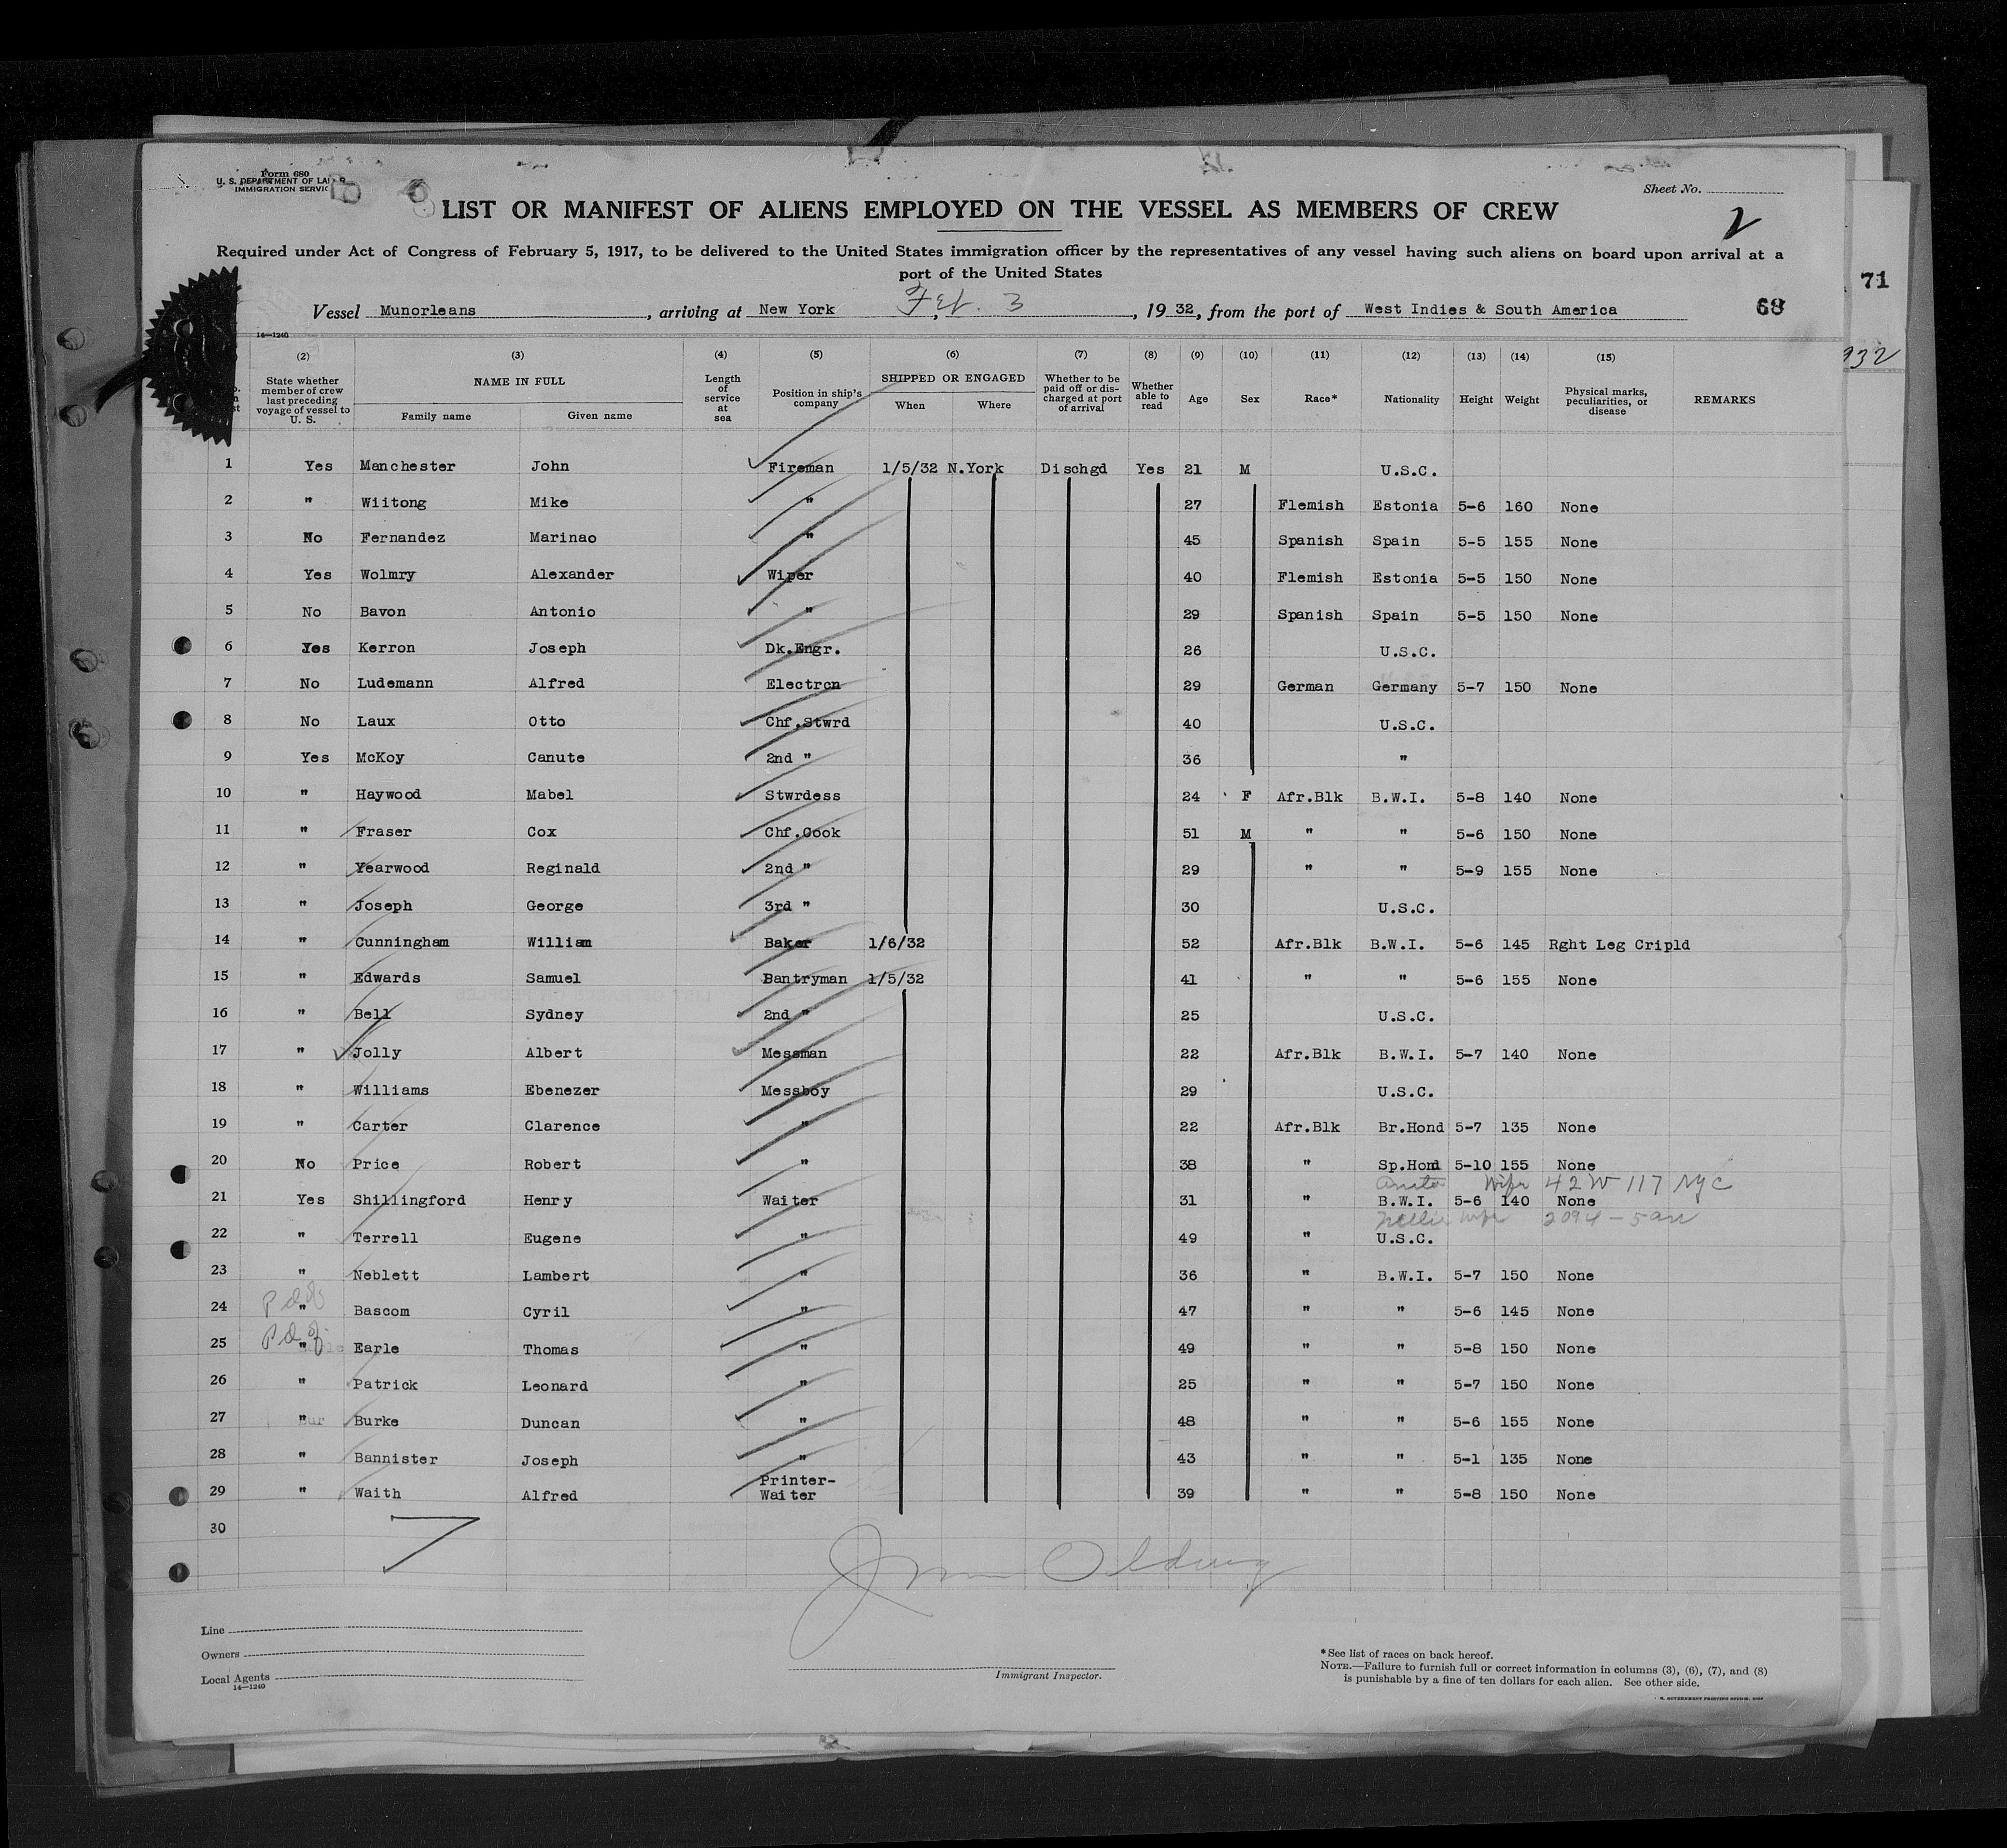 Form 680
U. S. DEPARTMENT OF LABOR
IMMIGRATION SERVICE
Sheet No.
2
LIST OR MANIFEST OF ALIENS EMPLOYED ON THE VESSEL AS MEMBERS OF CREW
Required under Act of Congress of February 5, 1917, to be delivered to the United States immigration officer by the representatives of any vessel having such aliens on board upon arrival at a
port of the United States
71
68
Vessel Munorleans, arriving at New York, Feb. 3, 1932, from the port of West Indies & South America
14—1240
932
(2) (3) (4) (5) (6) (7) (8) (9) (10) (11) (12) (13) (14) (15)
State whether member of crew last preceding voyage of vessel to U. S. NAME IN FULL Family name Given name Length of service at sea Position in ship's company SHIPPED OR ENGAGED When Where Whether to be paid off or discharged at port of arrival Whether able to read Age Sex Race* Nationality Height Weight Physical marks, peculiarities, or disease REMARKS
1 Yes Manchester John Fireman 1/5/32 N.York Dischgd Yes 21 M U.S.C.
2 " Wiitong Mike " 27 Flemish Estonia 5-6 160 None
3 No Fernandez Marinao " 45 Spanish Spain 5-5 155 None
4 Yes Wolmry Alexander Wiper 40 Flemish Estonia 5-5 150 None
5 No Bavon Antonio " 29 Spanish Spain 5-5 150 None
6 Yes Kerron Joseph Dk.Engr. 26 U.S.C.
7 No Ludemann Alfred Electrcn 29 German Germany 5-7 150 None
8 No Laux Otto Chf.Stwrd 40 U.S.C.
9 Yes McKoy Canute 2nd " 36 "
10 " Haywood Mabel Stwrdess 24 F Afr.Blk B.W.I. 5-8 140 None
11 " Fraser Cox Chf.Cook 51 M " " 5-6 150 None
12 " Yearwood Reginald 2nd " 29 " " 5-9 155 None
13 " Joseph George 3rd " 30 U.S.C.
14 " Cunningham William Baker 1/6/32 52 Afr.Blk B.W.I. 5-6 145 Rght Leg Cripld
15 " Edwards Samuel Pantryman 1/5/32 41 " " 5-6 155 None
16 " Bell Sydney 2nd " 25 U.S.C.
17 " Jolly Albert Messman 22 Afr.Blk B.W.I. 5-7 140 None
18 " Williams Ebenezer Messboy 29 U.S.C.
19 " Carter Clarence " 22 Afr.Blk Br.Hond 5-7 135 None
20 No Price Robert " 38 " Sp.Hond 5-10 155 None
Anita Wife 42 W 117 NYC
21 Yes Shillingford Henry Waiter 31 " B.W.I. 5-6 140 None
Nellie wife 2094 - 5 av
22 " Terrell Eugene " 49 " U.S.C.
23 " Neblett Lambert " 36 " B.W.I. 5-7 150 None
24 " Bascom Cyril " 47 " " 5-6 145 None
25 " Earle Thomas " 49 " " 5-8 150 None
26 " Patrick Leonard " 25 " " 5-7 150 None
27 " Burke Duncan " 48 " " 5-6 155 None
28 " Bannister Joseph " 43 " " 5-1 135 None
29 " Waith Alfred Printer-Waiter 39 " " 5-8 150 None
30
Line
Owners
Local Agents
14—1240
Immigrant Inspector.
*See list of races on back hereof.
NOTE.—Failure to furnish full or correct information in columns (3), (6), (7), and (8)
is punishable by a fine of ten dollars for each alien. See other side.